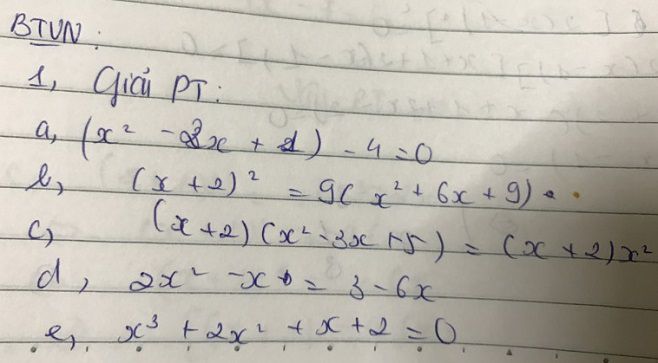 BTVN:
1, Giải PT:
a, (x² - 2x + 1) - 4 = 0
b, (x + 2)² = 9(x² + 6x + 9)
c, (x + 2)(x² - 3x + 5) = (x + 2)x²
d, 2x² - x = 3 - 6x
e, x³ + 2x² + x + 2 = 0